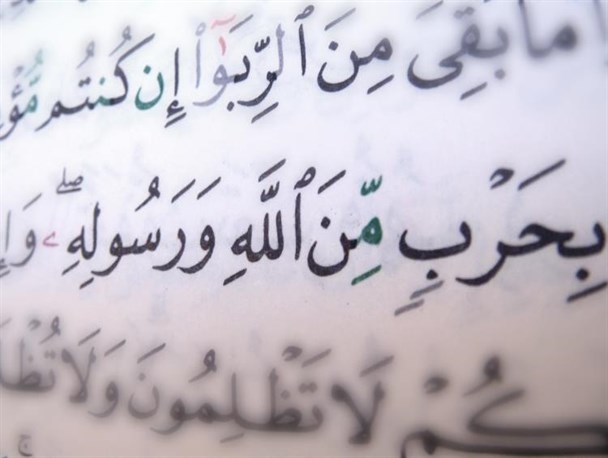 مَا بَقِىَ مِنَ ٱلرِّبَوٰٓا۟ إِن كُنتُم
بِحَرْبٍ مِّنَ ٱللَّهِ وَرَسُولِهِۦ ۖ
كُمْ لَا تَظْلِمُونَ وَلَا